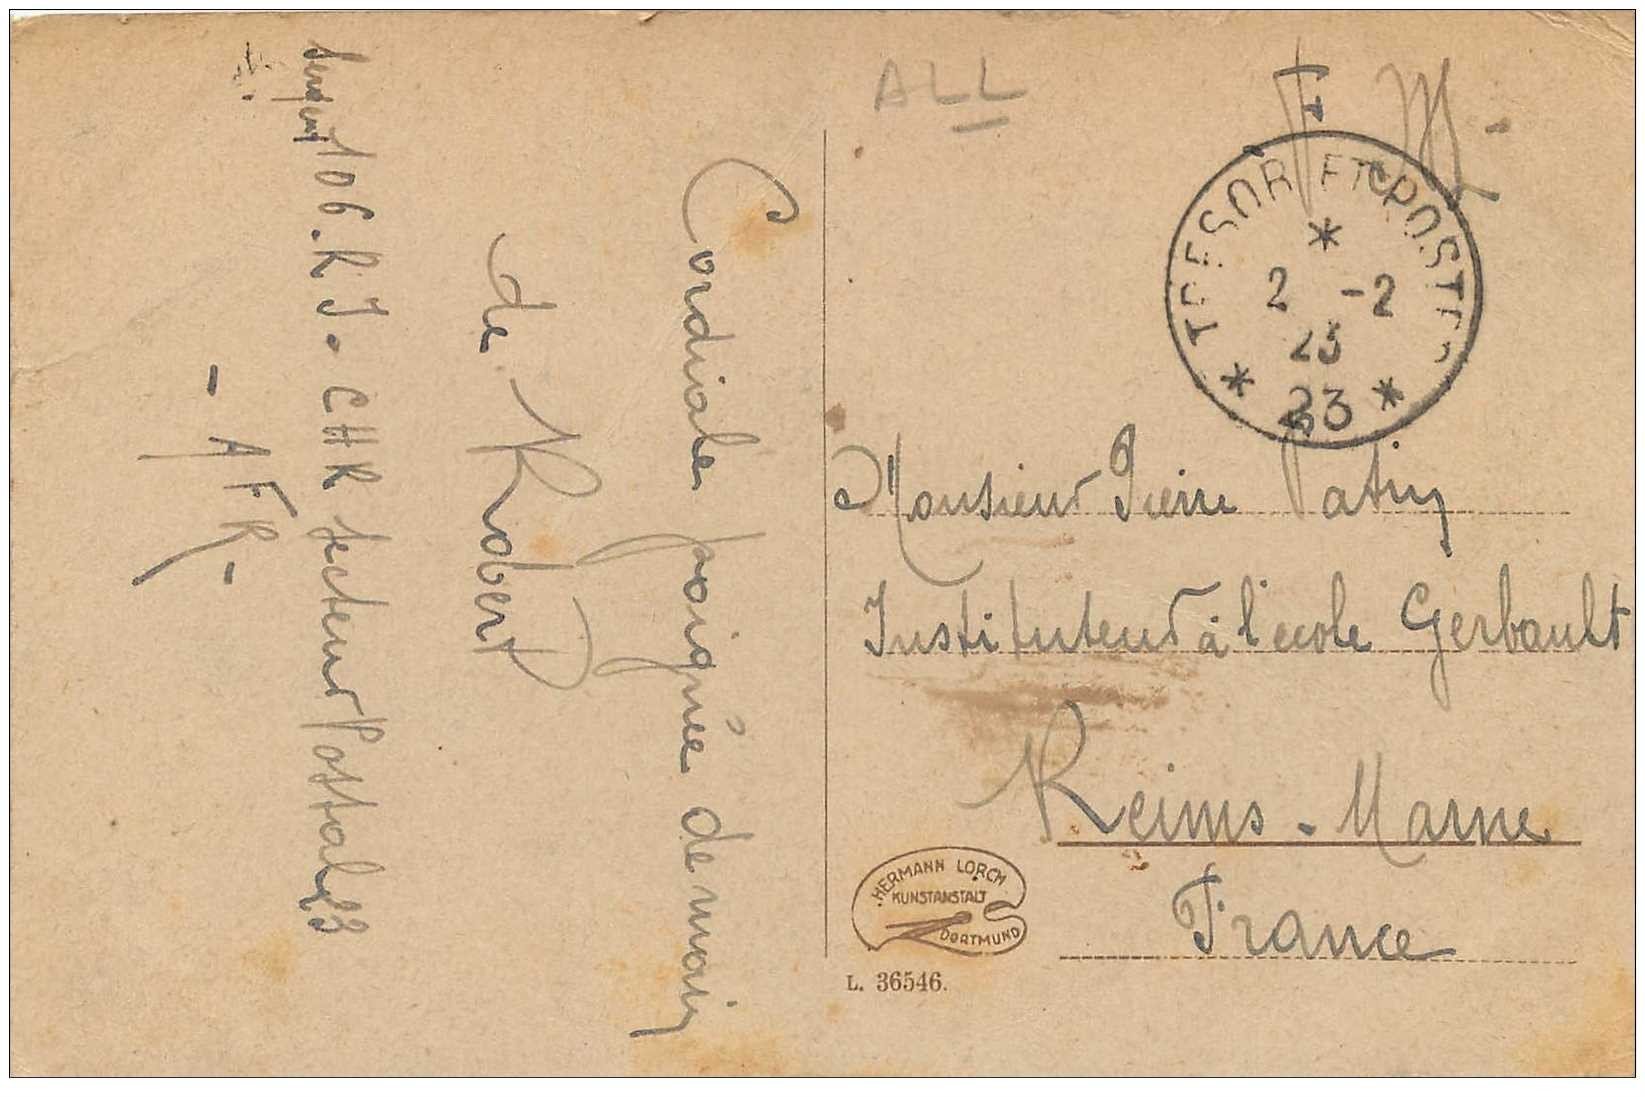 Cordiales poignée de main
de Robert
106. R I. CHR secteur Postal 23
- AFR -
ALL
F M.
TRESOR ET POSTES
2 -2
23
* 23 *
Monsieur Pierre
Instituteur à l'ecole Gerbault
Reims - Marne
France
HERMANN LORCH
KUNSTANSTALT
DORTMUND
L. 36546.